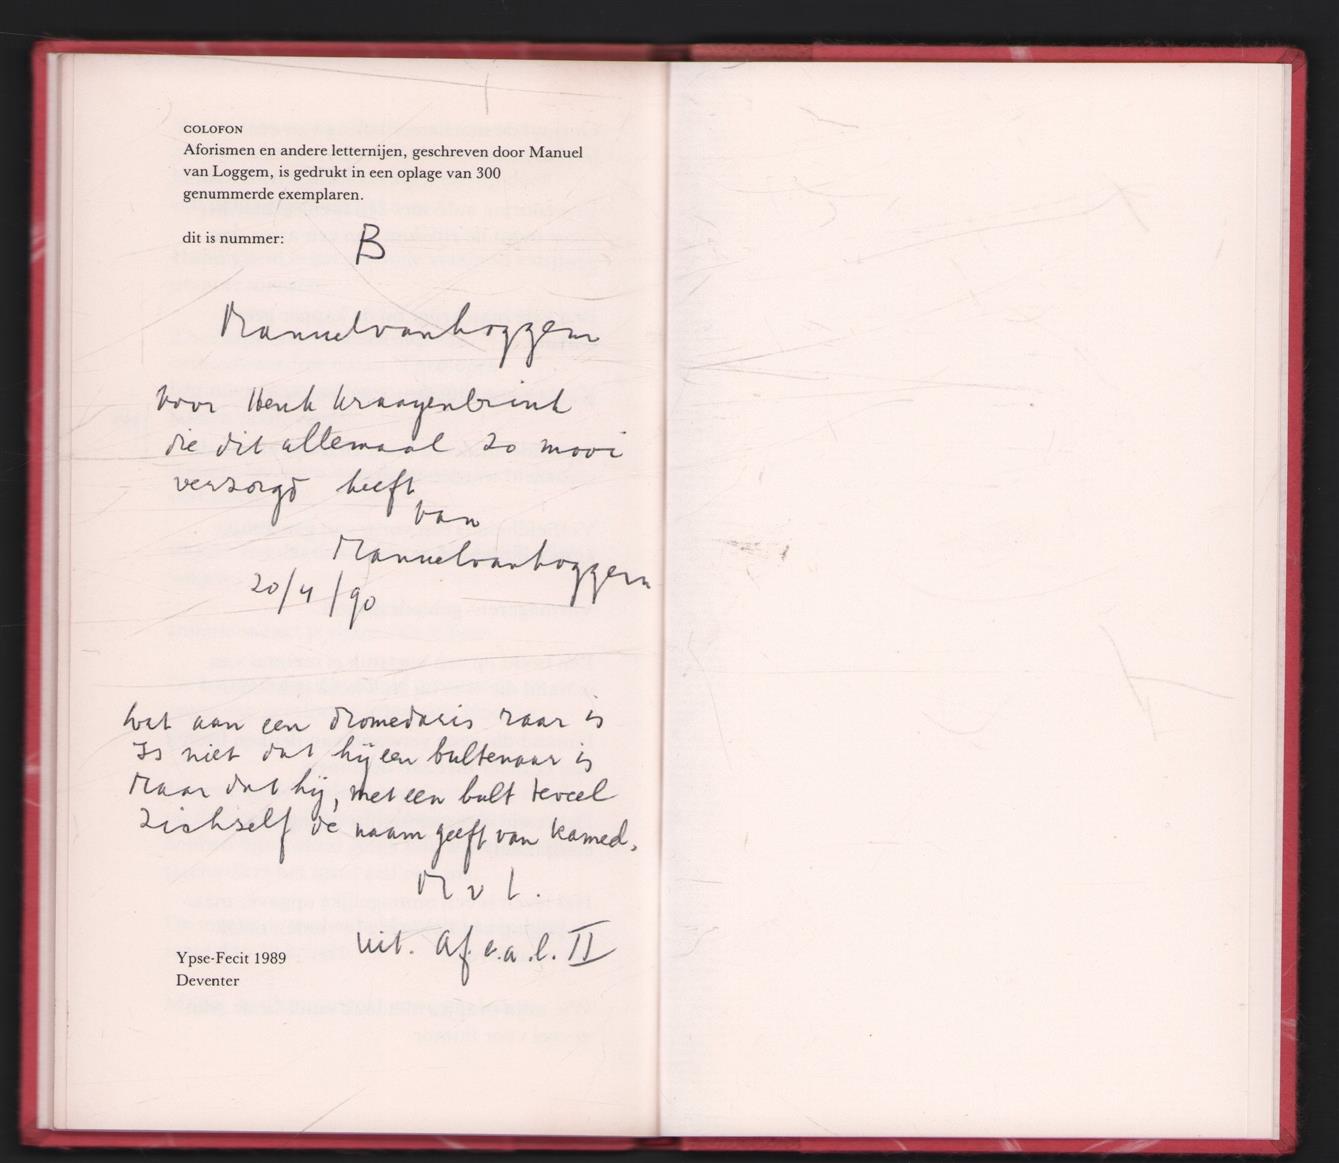 COLOFON
Aforismen en andere letternijen, geschreven door Manuel
van Loggem, is gedrukt in een oplage van 300
genummerde exemplaren.
dit is nummer: B
Manuel van Loggem
voor Henk Kraayenbrink
die dit allemaal zo mooi
verzorgd heeft
van
Manuel van Loggem
20/4/90
Wat aan een dromedaris raar is
Is niet dat hij een bultenaar is
Maar dat hij, met een bult teveel
Zichself de naam geeft van kameel.
M v L.
uit. Af. e. a. l. II
Ypse-Fecit 1989
Deventer